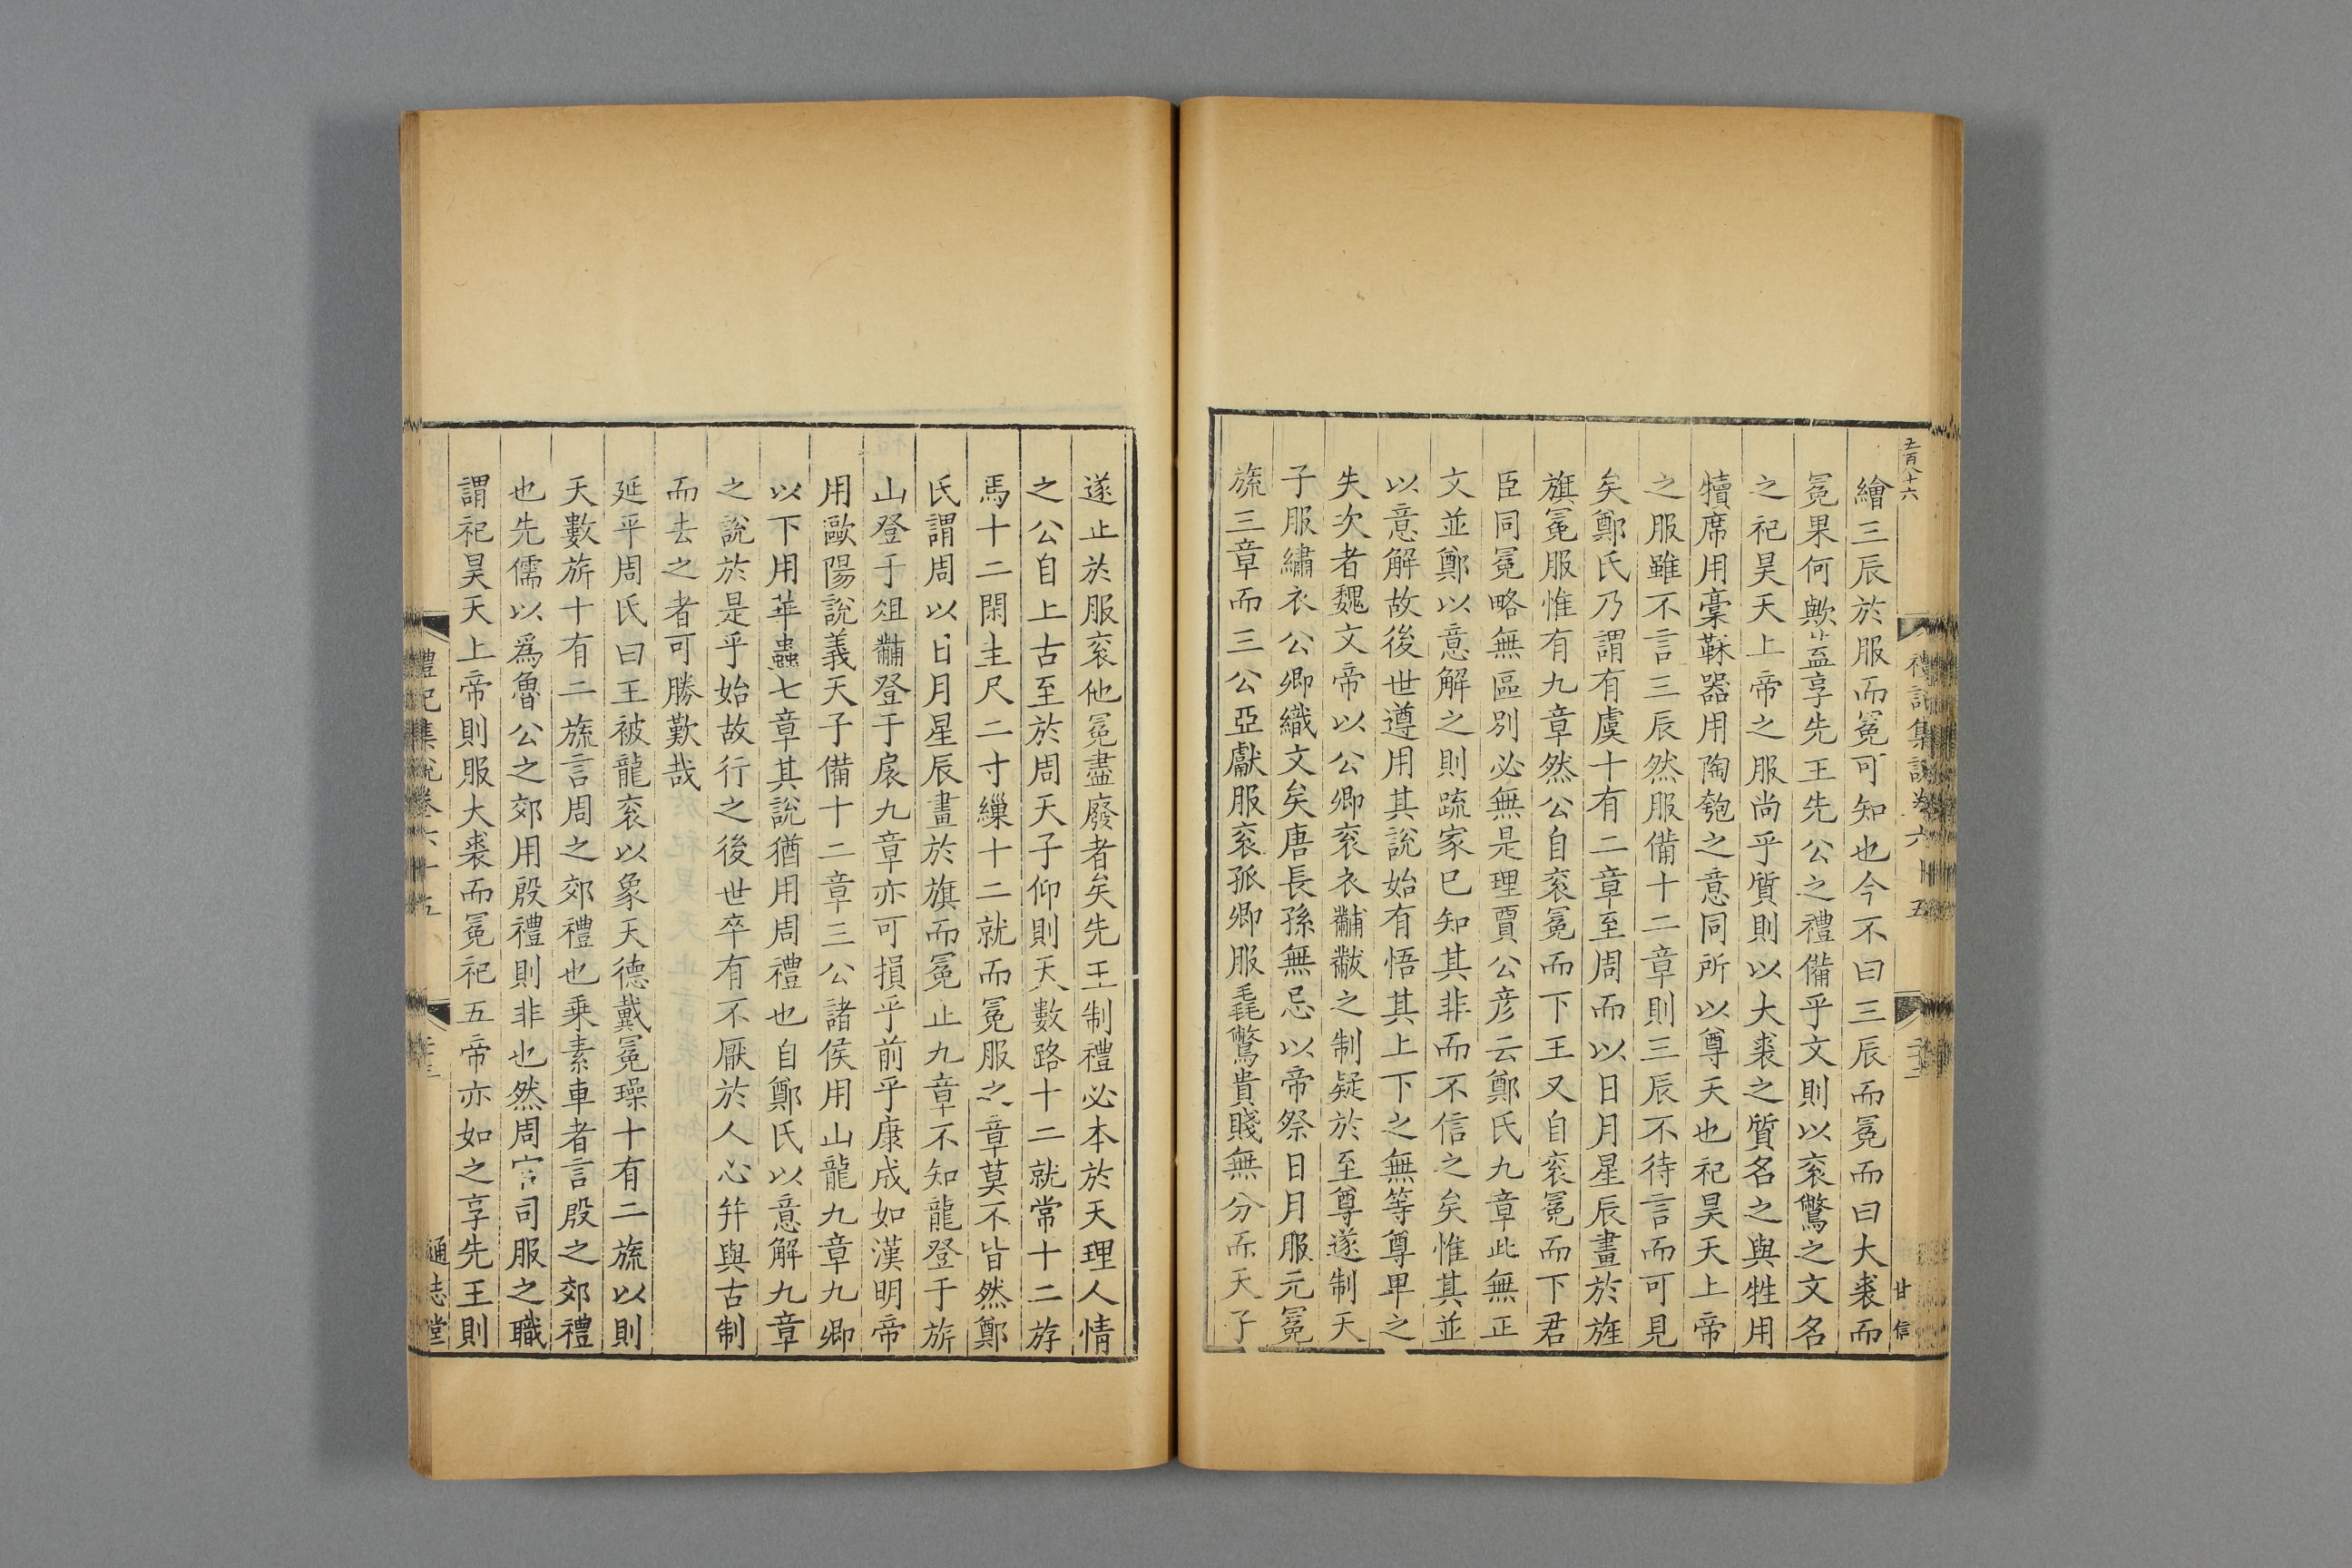 五百八十六
禮記集說卷六十五
甘信
繪三辰於服而冕可知也今不曰三辰而冕而曰大裘而
冕果何歟蓋享先王先公之禮備乎文則以衮鷩之文名
之祀昊天上帝之服尚乎質則以大裘之質名之與牲用
犢席用槀鞂器用陶匏之意同所以尊天也祀昊天上帝
之服雖不言三辰然服備十二章則三辰不待言而可見
矣鄭氏乃謂有虞十有二章至周而以日月星辰畫於旌
旗冕服惟有九章然公自衮冕而下王又自衮冕而下君
臣同冕略無區別必無是理賈公彦云鄭氏九章此無正
文並鄭以意解之則疏家已知其非而不信之矣惟其並
以意解故後世遵用其說始有悟其上下之無等尊卑之
失次者魏文帝以公卿衮衣黼黻之制疑於至尊遂制天
子服繡衣公卿織文矣唐長孫無忌以帝祭日月服元冕
旒三章而三公亞獻服衮孤卿服毳鷩貴賤無分而天子
遂止於服衮他冕盡廢者矣先王制禮必本於天理人情
之公自上古至於周天子仰則天數路十二就常十二斿
馬十二閑圭尺二寸繅十二就而冕服之章莫不皆然鄭
氏謂周以日月星辰畫於旗而冕止九章不知龍登于旂
山登于俎黼登于扆九章亦可損乎前乎康成如漢明帝
用歐陽說義天子備十二章三公諸侯用山龍九章九卿
以下用華蟲七章其說猶用周禮也自鄭氏以意解九章
之說於是乎始故行之後世卒有不厭於人心幷與古制
而去之者可勝歎哉
延平周氏曰王被龍衮以象天德戴冕璪十有二旒以則
天數旂十有二旒言周之郊禮也乗素車者言殷之郊禮
也先儒以爲魯公之郊用殷禮則非也然周官司服之職
謂祀昊天上帝則服大裘而冕祀五帝亦如之享先王則
禮記集說卷六十五
通志堂